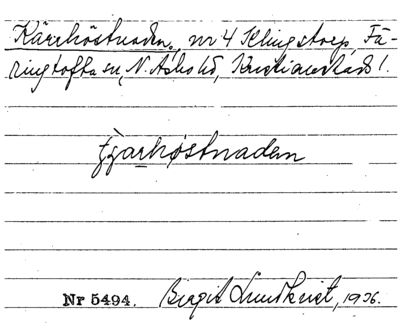 Kärrhöstnaden, nr 4 Klingstorp, Fä-
ringtofta sn, N. Åsbo hd, Kristianstads l.
çęarhøstnadan
Nr 5494. Birgit Lundkvist, 1936.